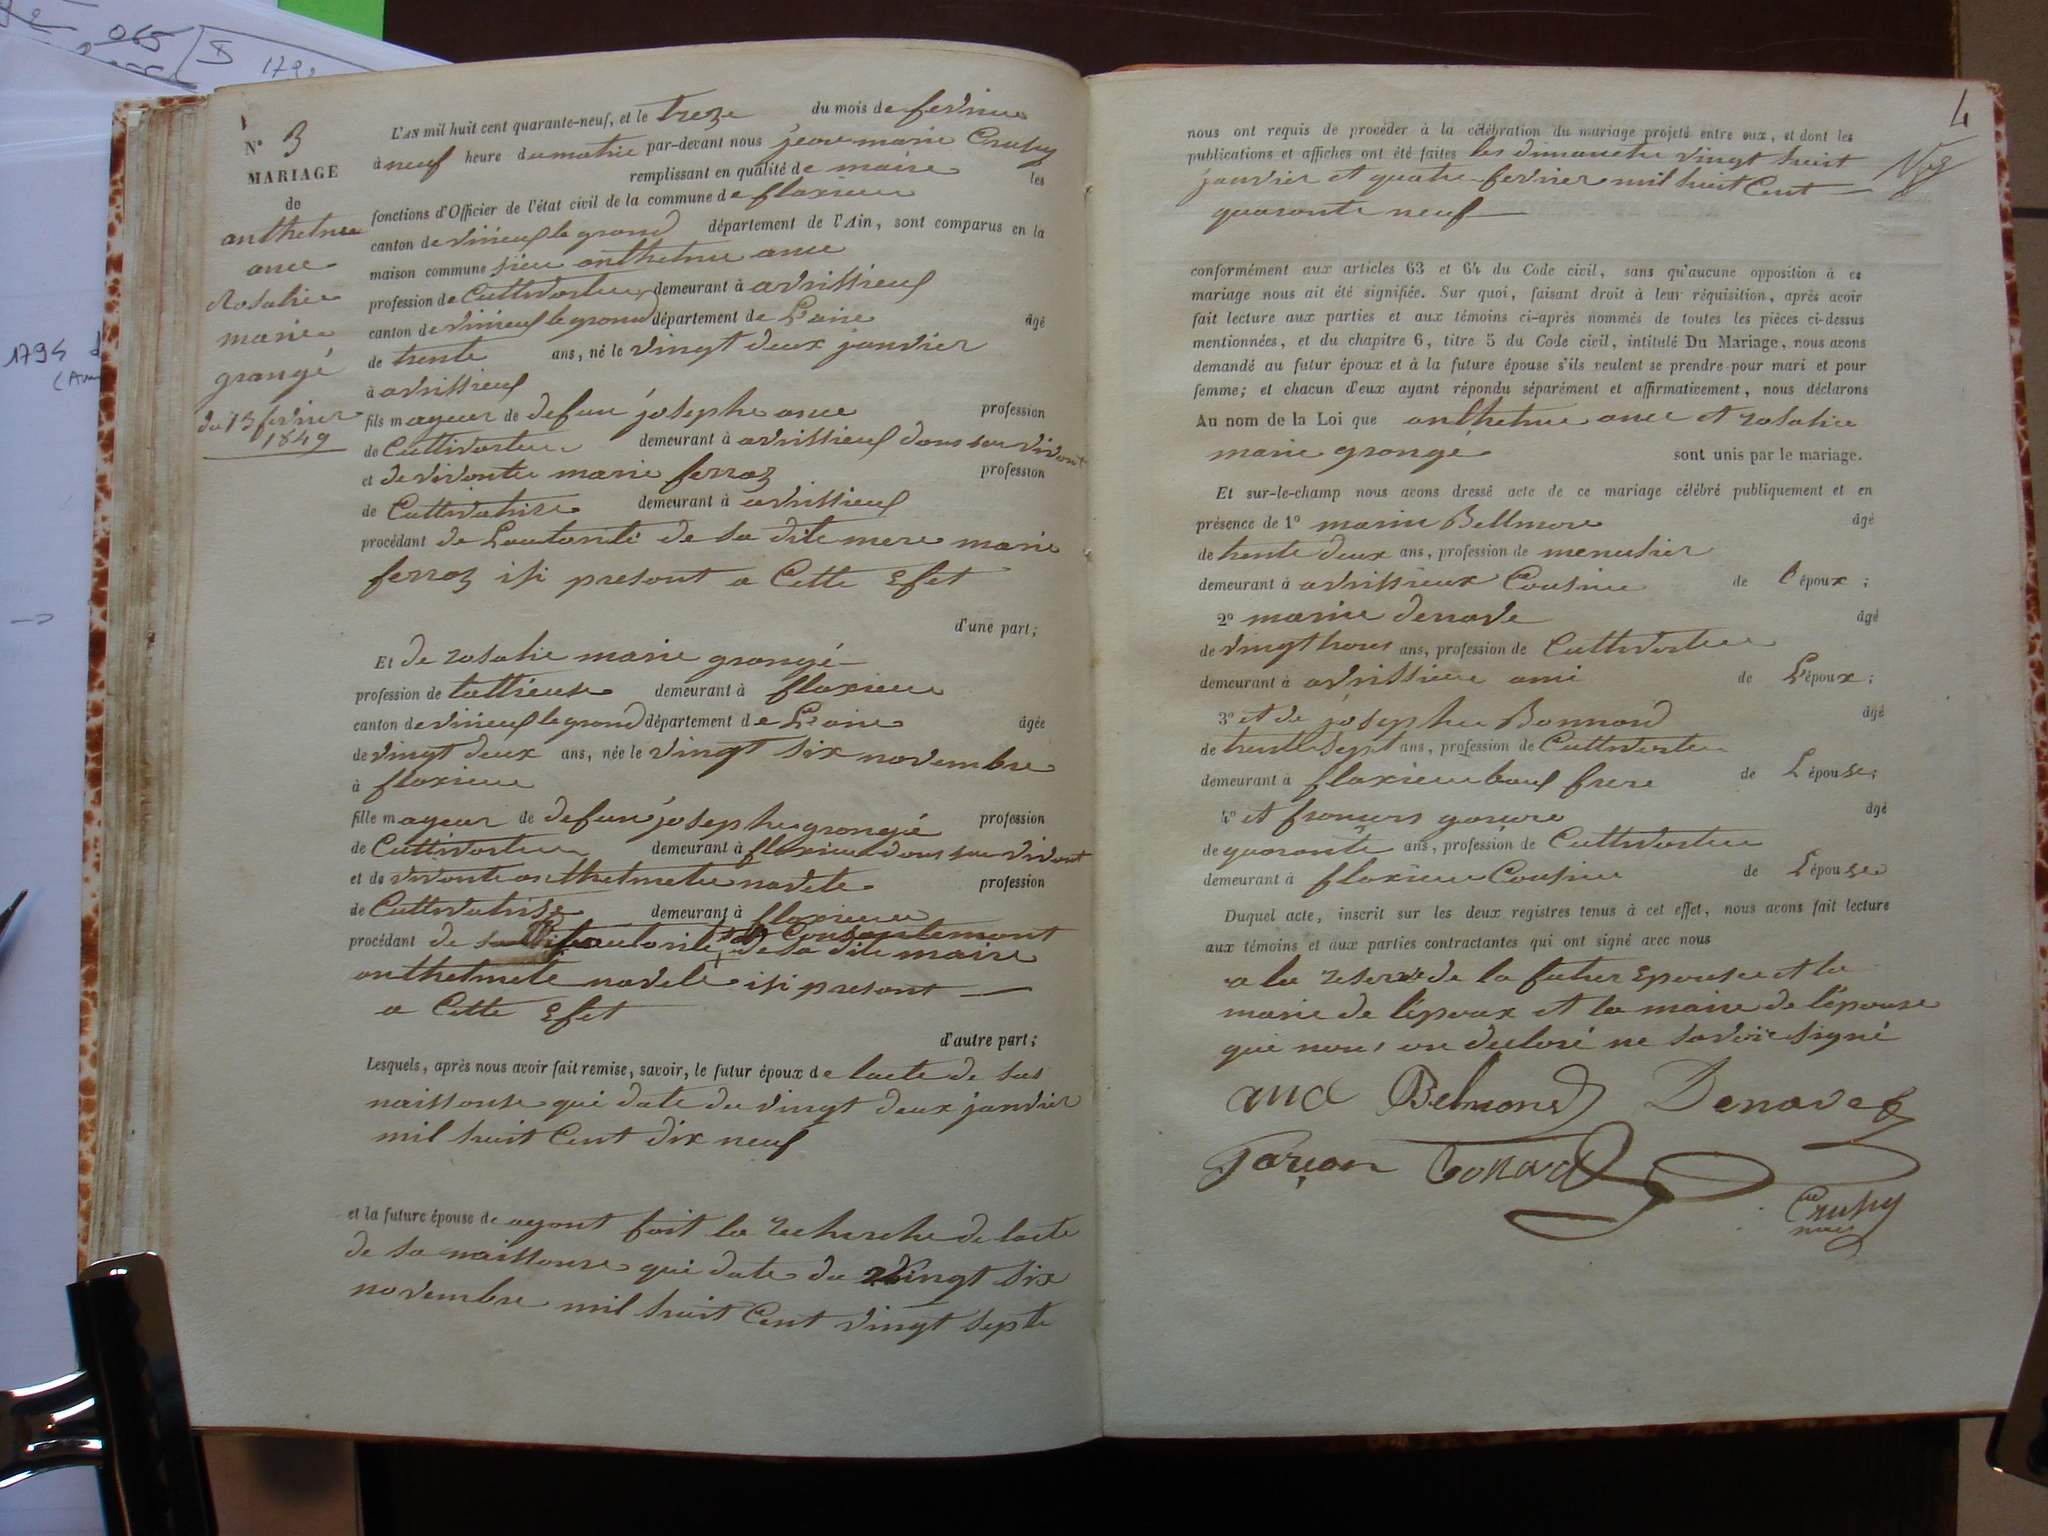 N° 3
MARIAGE
de
anthelme
ance
Rosalie
marie
grangé
du 13 fevrier
1849
L'AN mil huit cent quarante-neuf, et le treze du mois de fevrier
à neuf heure du matin par-devant nous jean marie Crussy
remplissant en qualité de maire les
fonctions d'Officier de l'état civil de la commune de flaxieu
canton de virieu le grand département de l'Ain, sont comparus en la
maison commune sieu anthelme ance
profession de Cultivateur demeurant à avrissieu
canton de virieu le grand département de L'ain âgé
de trente ans, né le vingt deux janvier
à avrissieu
fils mayeur de defun josephe ance profession
de Cultivateur demeurant à avrissieu dans sou vivant
et de vivante marie ferraz profession
de Cultivatrise demeurant à avrissieu
procédant de Lautorité de sa dite mere marie
ferraz isi present a Cette Efet
d'une part;
Et de rosalie marie grangé
profession de tallieuse demeurant à flaxieu
canton de virieu le grand département de L'ain âgée
de vingt deux ans, née le vingt six novembre
à flaxieu
fille mayeur de defun josephe grangé profession
de Cultivateur demeurant à flaxieu dans sou vivant
et de vivante anthelmete navete profession
de Cultivatrise demeurant à flaxieu
procédant de autorité Consantemant de sa dite maire
anthelmete navete isi presant
a Cette Efet
d'autre part;
Lesquels, après nous avoir fait remise, savoir, le futur époux de lacte de sas
naissanse qui date du vingt deux janvier
mil huit Cent dix neuf
et la future épouse de ayant fait la recherche de lacte
de sa naissanse qui date du vingt six
novembre mil huit Cent vingt septe
4
nous ont requis de procéder à la célébration du mariage projeté entre eux, et dont les
publications et affiches ont été faites les dimanche vingt huit
janvier et quatre fevrier mil huit Cent
quarante neuf
conformément aux articles 63 et 64 du Code civil, sans qu'aucune opposition à ce
mariage nous ait été signifiée. Sur quoi, faisant droit à leur réquisition, après avoir
fait lecture aux parties et aux témoins ci-après nommés de toutes les pièces ci-dessus
mentionnées, et du chapitre 6, titre 5 du Code civil, intitulé Du Mariage, nous avons
demandé au futur époux et à la future épouse s'ils veulent se prendre pour mari et pour
femme; et chacun d'eux ayant répondu séparément et affirmativement, nous déclarons
Au nom de la Loi que anthelme ance et rosalie
marie grangé sont unis par le mariage.
Et sur-le-champ nous avons dressé acte de ce mariage célébré publiquement et en
présence de 1° marin Bellmon âgé
de trente deux ans, profession de menusier
demeurant à avrissieux Cousin de l'époux;
2° marin denave âgé
de vingt trois ans, profession de Cultivateur
demeurant à avrissieu ami de L'époux;
3° et de josephe Bonnard âgé
de trente sept ans, profession de Cultivateur
demeurant à flaxieu beau frere de Lépouse;
4° et françois âgé
de quarante ans, profession de Cultivateur
demeurant à flaxieu Cousin de Lépouse
Duquel acte, inscrit sur les deux registres tenus à cet effet, nous avons fait lecture
aux témoins et aux parties contractantes qui ont signé avec nous
a la reserve de la futur Epouse et la
marie de l'époux et la maire de l'épouse
qui nous on declaré ne savoir signé
ance Belmond Denavet
Garçon Bonard
Crussy
maire
1794